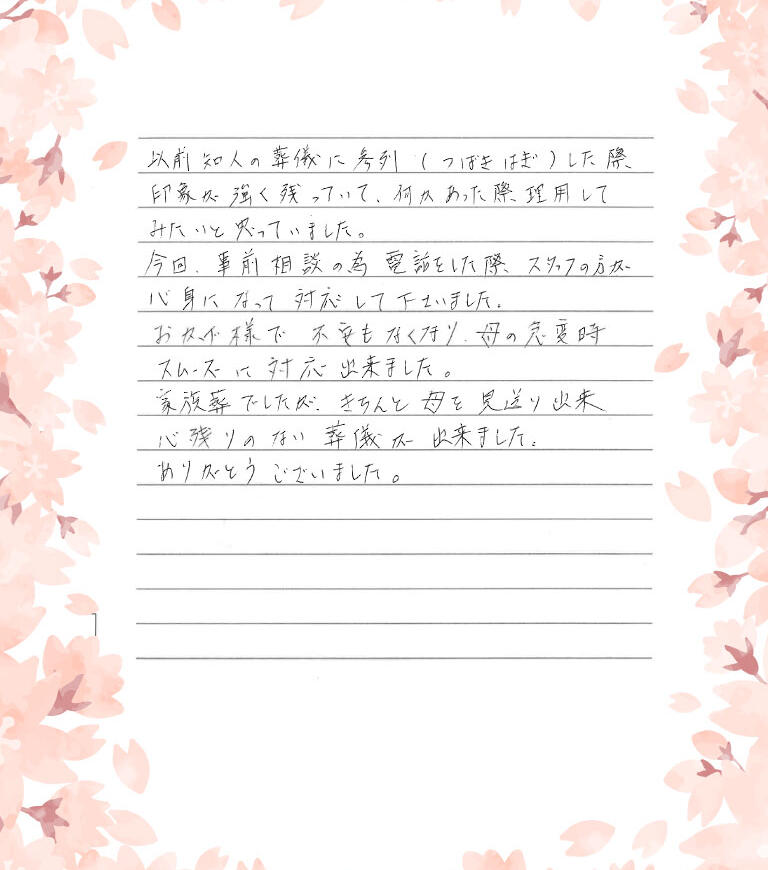 以前知人の葬儀に参列(つばきはぎ)した際
印象が強く残っていて、何かあった際理用して
みたいと思っていました。
今回、事前相談の為電話をした際、スタッフの方が
心身になって対応して下さいました。
おかげ様で不安もなくなり、母の急変時
スムーズに対応出来ました。
家族葬でしたが、きちんと母を見送り出来
心残りのない葬儀が出来ました。
ありがとうございました。